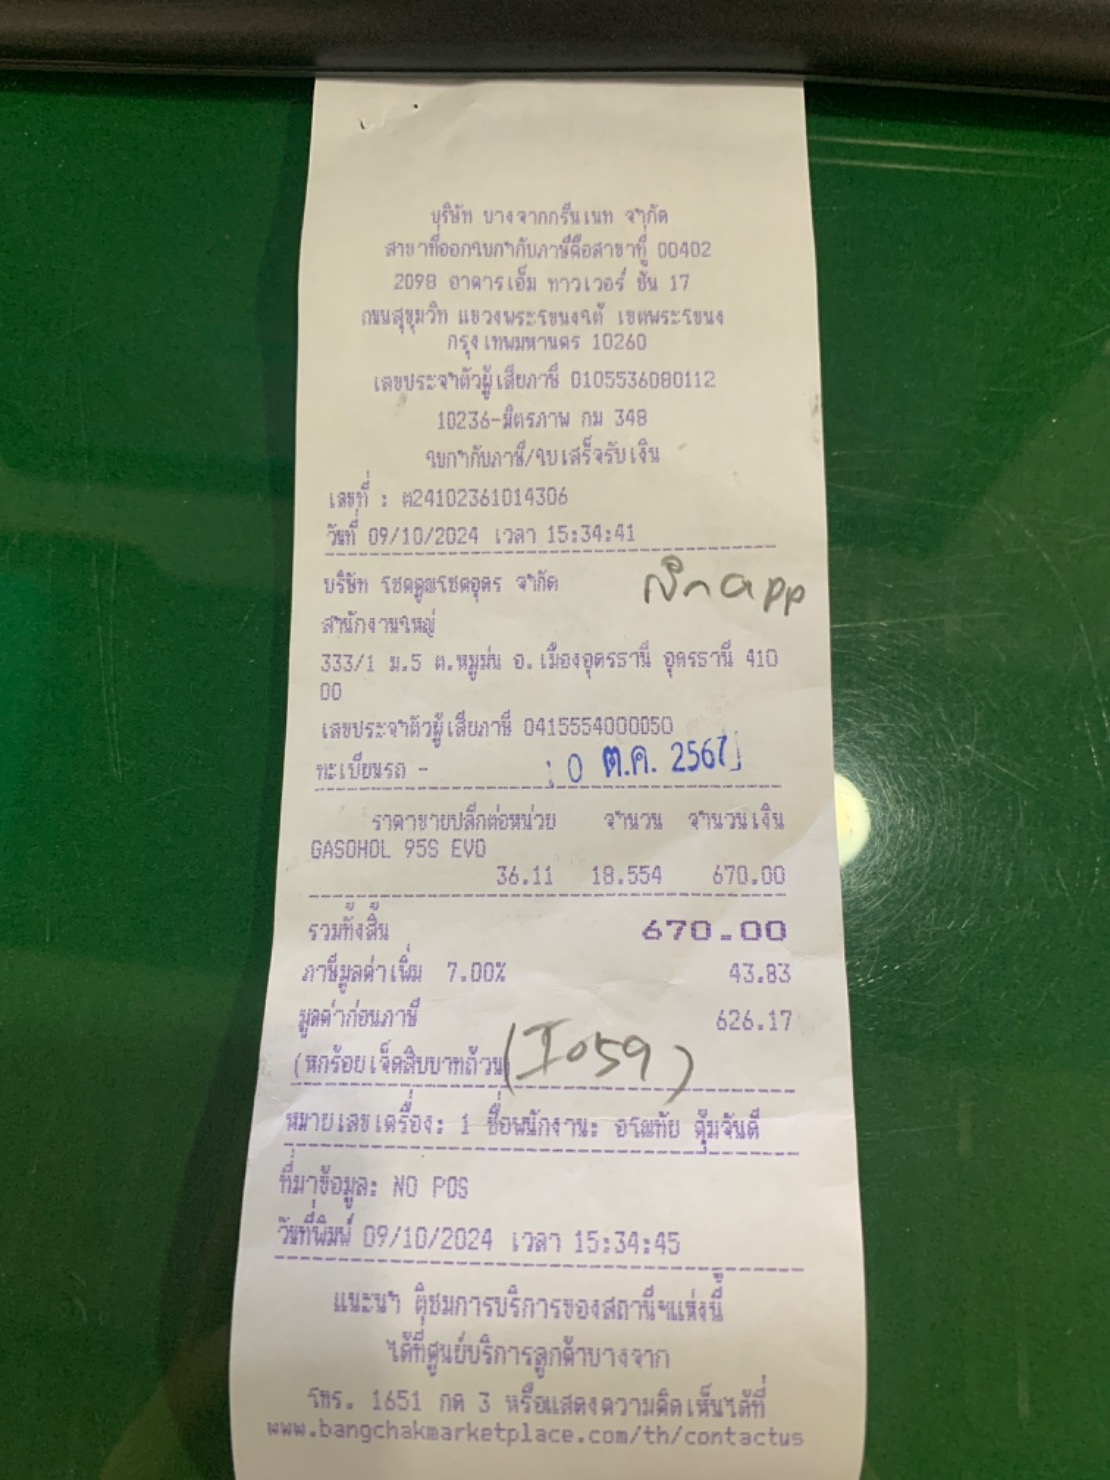 บริษัท บางจากกรีนเนท จำกัด
สาขาที่ออกใบกำกับภาษีคือสาขาที่ 00402
2098 อาคารเอ็ม ทาวเวอร์ ชั้น 17
ถนนสุขุมวิท แขวงพระโขนงใต้ เขตพระโขนง
กรุงเทพมหานคร 10260
เลขประจำตัวผู้เสียภาษี 0105536080112
10236-มิตรภาพ กม 348
ใบกำกับภาษี/ใบเสร็จรับเงิน
เลขที่ : ต24102361014306
วันที่ 09/10/2024 เวลา 15:34:41
บริษัท โชคคูณโชคอุดร จำกัด
app
สำนักงานใหญ่
333/1 ม.5 ต.หมูม่น อ.เมืองอุดรธานี อุดรธานี 410
00
เลขประจำตัวผู้เสียภาษี 0415554000050
ทะเบียนรถ -
10 ต.ค. 2567
ราคาขายปลีกต่อหน่วย จำนวน จำนวนเงิน
GASOHOL 95S EVO
36.11 18.554 670.00
รวมทั้งสิ้น 670.00
ภาษีมูลค่าเพิ่ม 7.00% 43.83
มูลค่าก่อนภาษี 626.17
(หกร้อยเจ็ดสิบบาทถ้วน)
(I059)
หมายเลขเครื่อง: 1 ชื่อพนักงาน: อรทัย คุ้มจันดี
ที่มาข้อมูล: NO POS
วันที่พิมพ์ 09/10/2024 เวลา 15:34:45
แนะนำ ติชมการบริการของสถานีฯแห่งนี้
ได้ที่ศูนย์บริการลูกค้าบางจาก
โทร. 1651 กด 3 หรือแสดงความคิดเห็นได้ที่
www.bangchakmarketplace.com/th/contactus